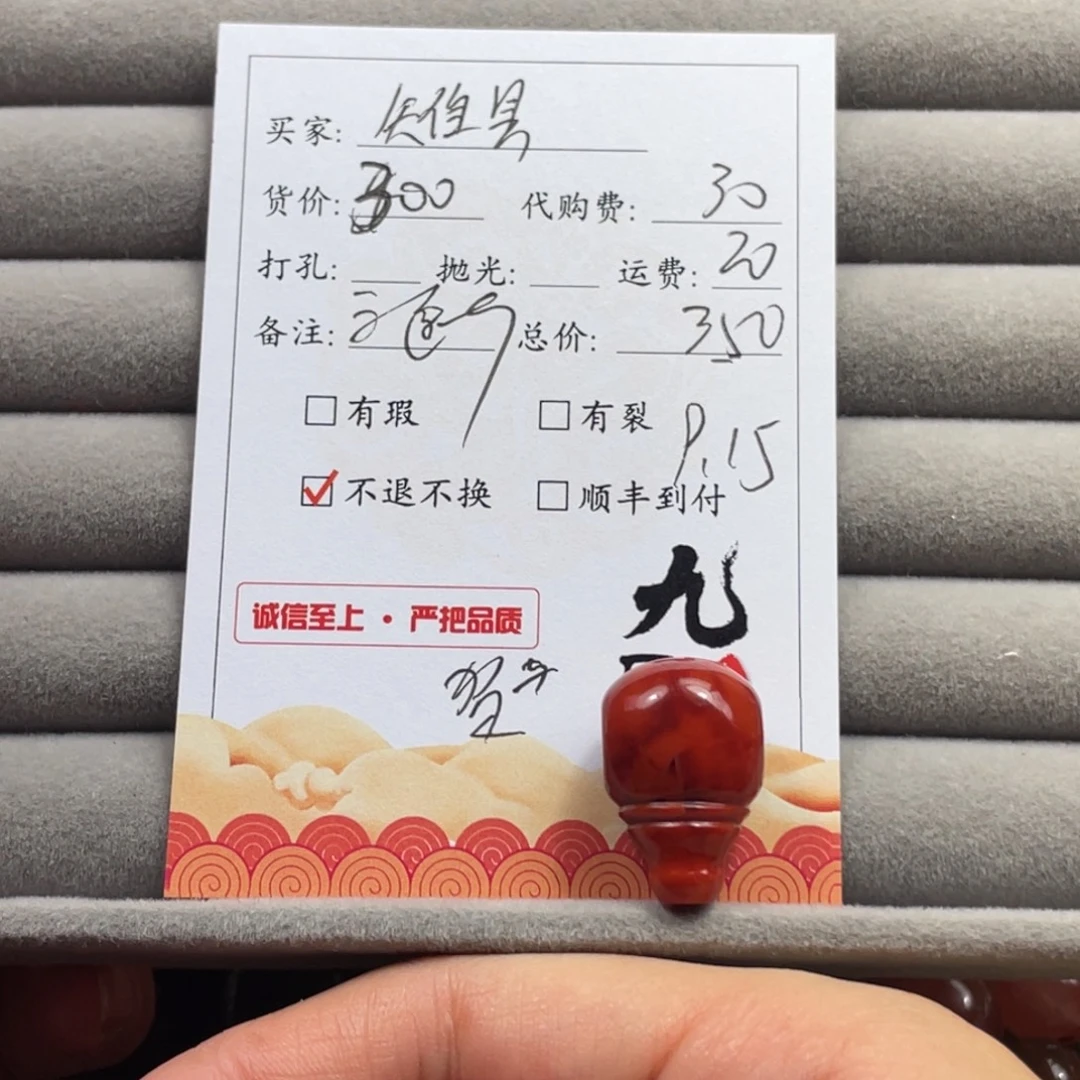 买家:
货价: 300 代购费: 30
打孔: 抛光: 运费: 20
备注: 三通 总价: 350
有瑕 有裂
P.15
不退不换 顺丰到付
九
诚信至上·严把品质